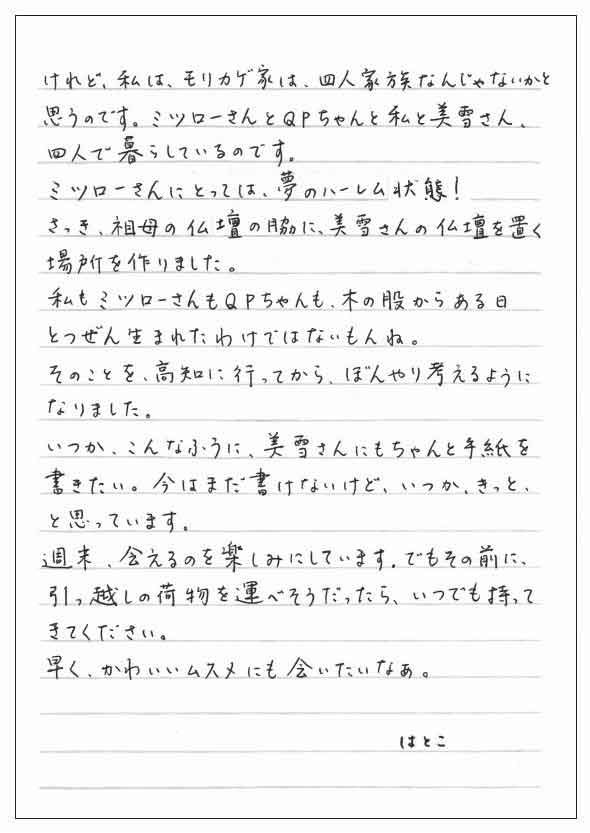 けれど、私は、モリカゲ家は、四人家族なんじゃないかと
思うのです。ミツローさんとQPちゃんと私と美雪さん、
四人で暮らしているのです。
ミツローさんにとっては、夢のハーレム状態!
さっき、祖母の仏壇の脇に、美雪さんの仏壇を置く
場所を作りました。
私もミツローさんもQPちゃんも、木の股からある日
とつぜん生まれたわけではないもんね。
そのことを、高知に行ってから、ぼんやり考えるように
なりました。
いつか、こんなふうに、美雪さんにもちゃんと手紙を
書きたい。今はまだ書けないけど、いつか、きっと、
と思っています。
週末、会えるのを楽しみにしています。でもその前に、
引っ越しの荷物を運べそうだったら、いつでも持って
きてください。
早く、かわいいムスメにも会いたいなぁ。
はとこ